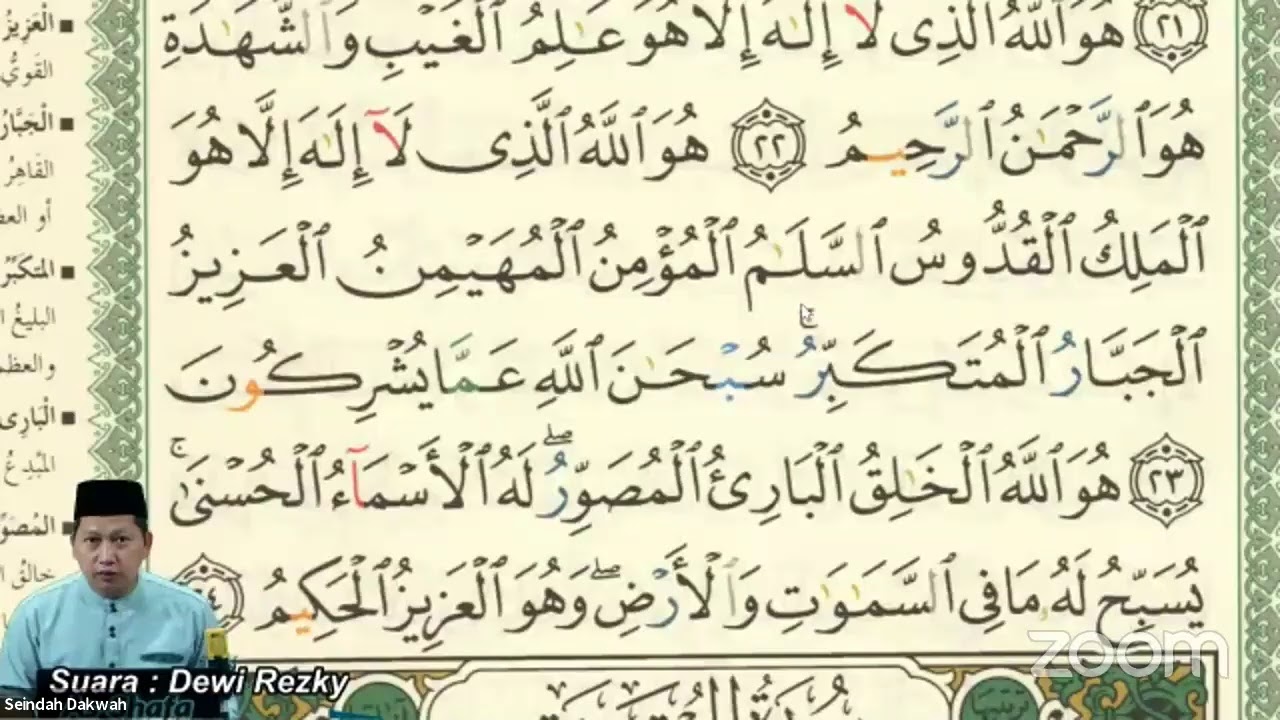 ﴿٢١﴾ هُوَ ٱللَّهُ ٱلَّذِى لَآ إِلَٰهَ إِلَّا هُوَ عَٰلِمُ ٱلْغَيْبِ وَٱلشَّهَٰدَةِ
هُوَ ٱلرَّحْمَٰنُ ٱلرَّحِيمُ ﴿٢٢﴾ هُوَ ٱللَّهُ ٱلَّذِى لَآ إِلَٰهَ إِلَّا هُوَ
ٱلْمَلِكُ ٱلْقُدُّوسُ ٱلسَّلَٰمُ ٱلْمُؤْمِنُ ٱلْمُهَيْمِنُ ٱلْعَزِيزُ
ٱلْجَبَّارُ ٱلْمُتَكَبِّرُ ۚ سُبْحَٰنَ ٱللَّهِ عَمَّا يُشْرِكُونَ
﴿٢٣﴾ هُوَ ٱللَّهُ ٱلْخَٰلِقُ ٱلْبَارِئُ ٱلْمُصَوِّرُ ۖ لَهُ ٱلْأَسْمَآءُ ٱلْحُسْنَىٰ ۚ
يُسَبِّحُ لَهُۥ مَا فِى ٱلسَّمَٰوَٰتِ وَٱلْأَرْضِ ۖ وَهُوَ ٱلْعَزِيزُ ٱلْحَكِيمُ ﴿٢٤﴾
■ الْعَزِيزُ
القَوِيُّ
■ الْجَبَّارُ
القَاهِرُ
أو
■ المُتَكَبِّرُ
البليغُ
■ الْبَارِئُ
المُبْدِعُ
■
خالِقُ
zoom
Suara : Dewi Rezky
Seindah Dakwah